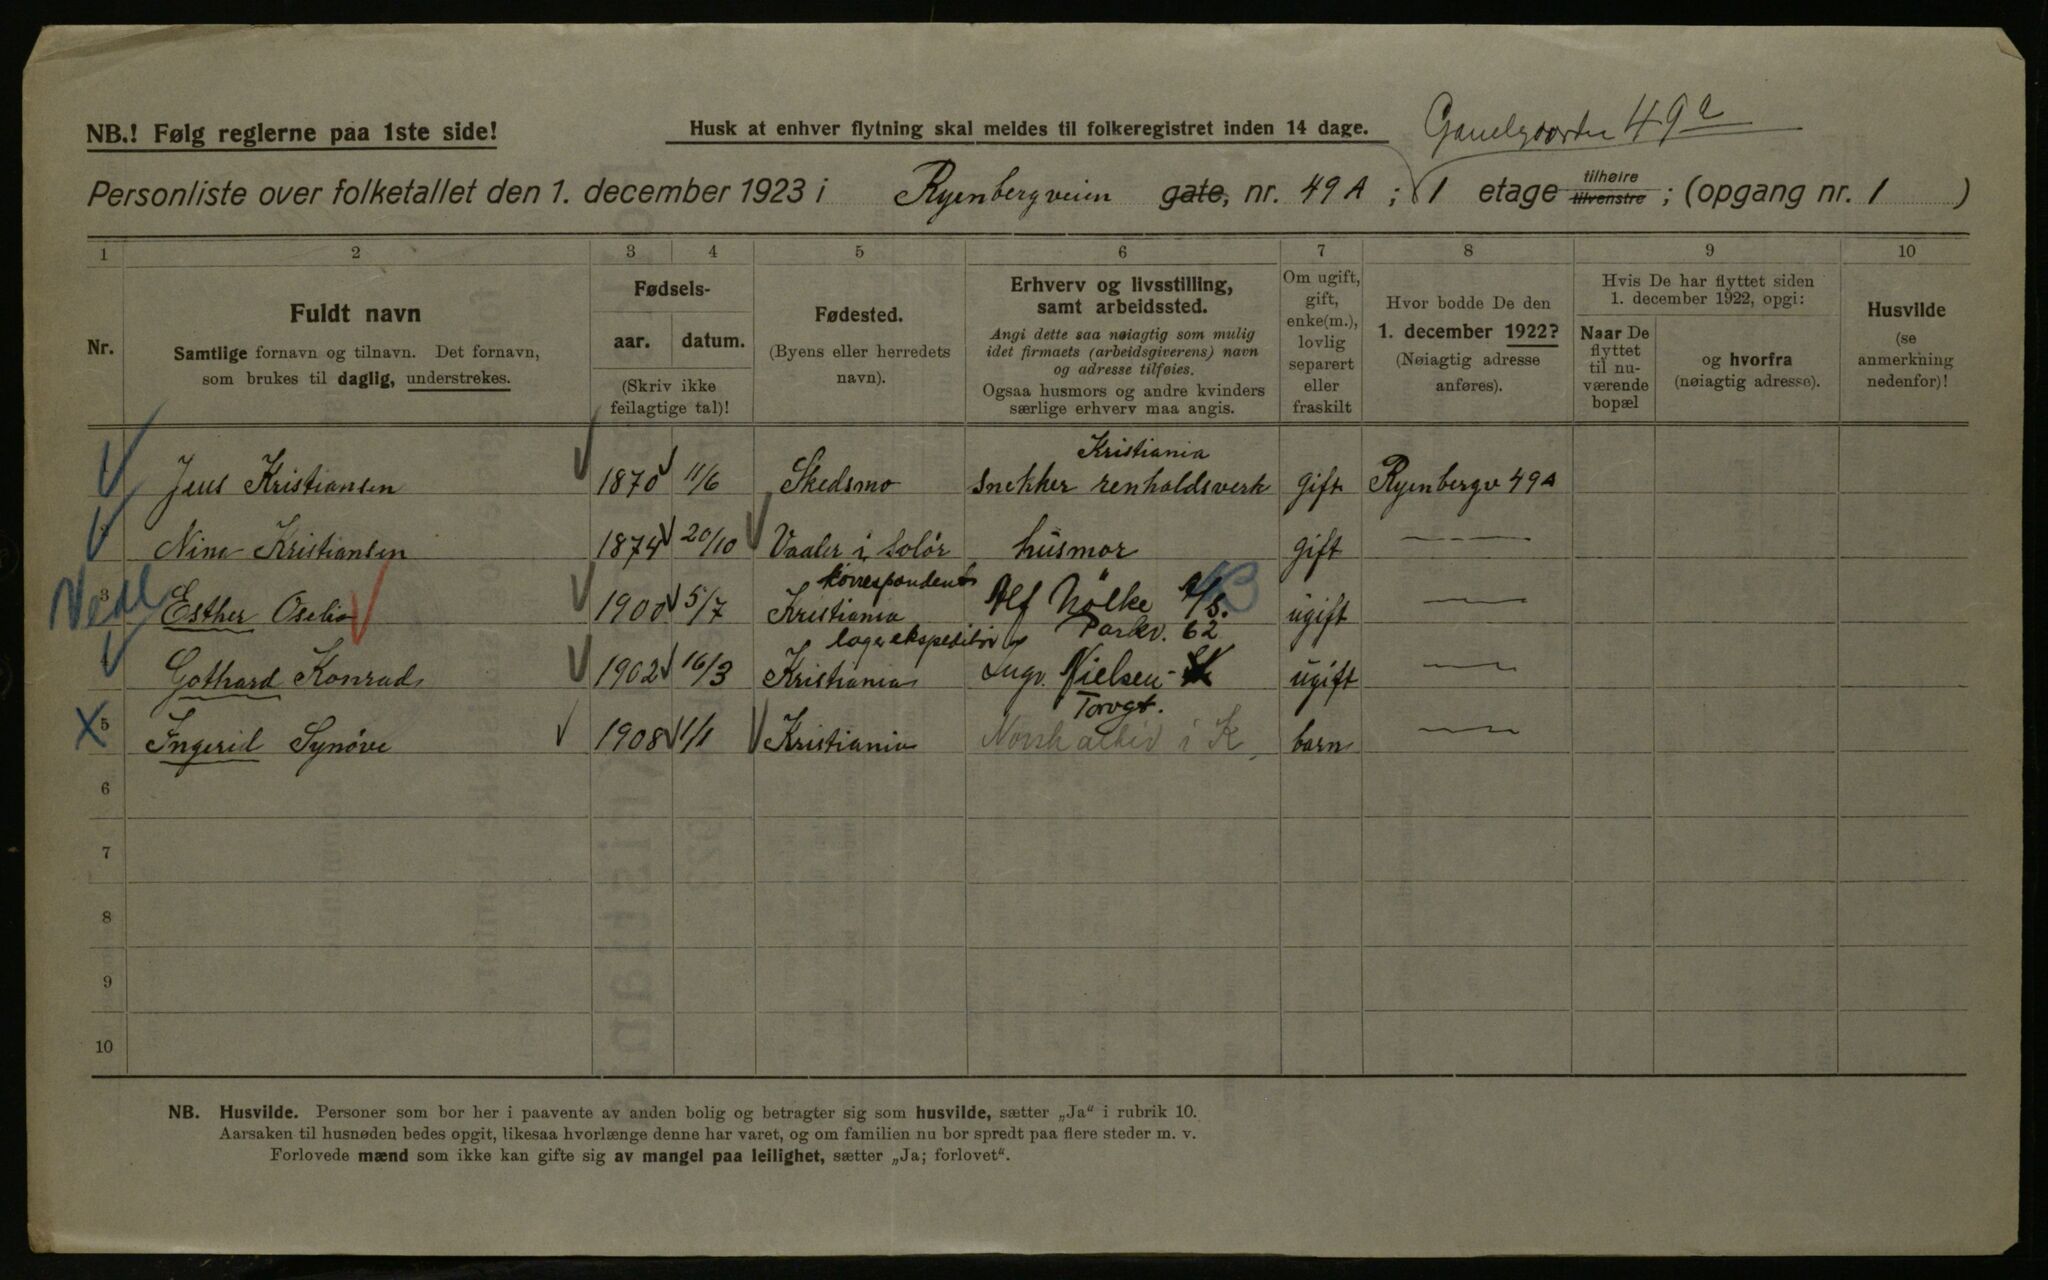 NB.! Følg reglerne paa 1ste side!
Husk at enhver flytning skal meldes til folkeregistret inden 14 dage.
49a
Personliste over folketallet den 1. december 1923 i Ryenbergveien gate, nr. 49A ; 1 etage tilhøire tilvenstre ; (opgang nr. 1 )
1 2 3 4 5 6 7 8 9 10
Nr.
Fuldt navn
Samtlige fornavn og tilnavn. Det fornavn,
som brukes til daglig, understrekes.
Fødsels-
aar. datum.
(Skriv ikke
feilagtige tal)!
Fødested.
(Byens eller herredets
navn).
Erhverv og livsstilling,
samt arbeidssted.
Angi dette saa nøiagtig som mulig
idet firmaets (arbeidsgiverens) navn
og adresse tilføies.
Ogsaa husmors og andre kvinders
særlige erhverv maa angis.
Om ugift,
gift,
enke(m.),
lovlig
separert
eller
fraskilt
Hvor bodde De den
1. december 1922?
(Nøiagtig adresse
anføres).
Hvis De har flyttet siden
1. december 1922, opgi:
Naar De
flyttet
til nu-
værende
bopæl
og hvorfra
(nøiagtig adresse).
Husvilde
(se
anmerkning
nedenfor)!
Kristiania
Jens Kristiansen 1870 11/6 Skedsmo Snekker renholdsverk gift Ryenbergv 49A
Nina Kristiansen 1874 20/10 Vaaler i Solør husmor gift —"—
korrespondent
3 Esther Oselia 1900 5/7 Kristiania Alf Nölke A/S. ugift —"—
lagerekspeditør Parkv. 62
Gothard Konrad 1902 16/3 Kristiania Ingv. Nielsen ugift —"—
Torvgt.
5 Ingerid Synöve 1908 1/1 Kristiania Norsk arbeid i K barn —"—
6
7
8
9
10
NB. Husvilde. Personer som bor her i paavente av anden bolig og betragter sig som husvilde, sætter „Ja“ i rubrik 10.
Aarsaken til husnøden bedes opgit, likesaa hvorlænge denne har varet, og om familien nu bor spredt paa flere steder m. v.
Forlovede mænd som ikke kan gifte sig av mangel paa leilighet, sætter „Ja; forlovet“.